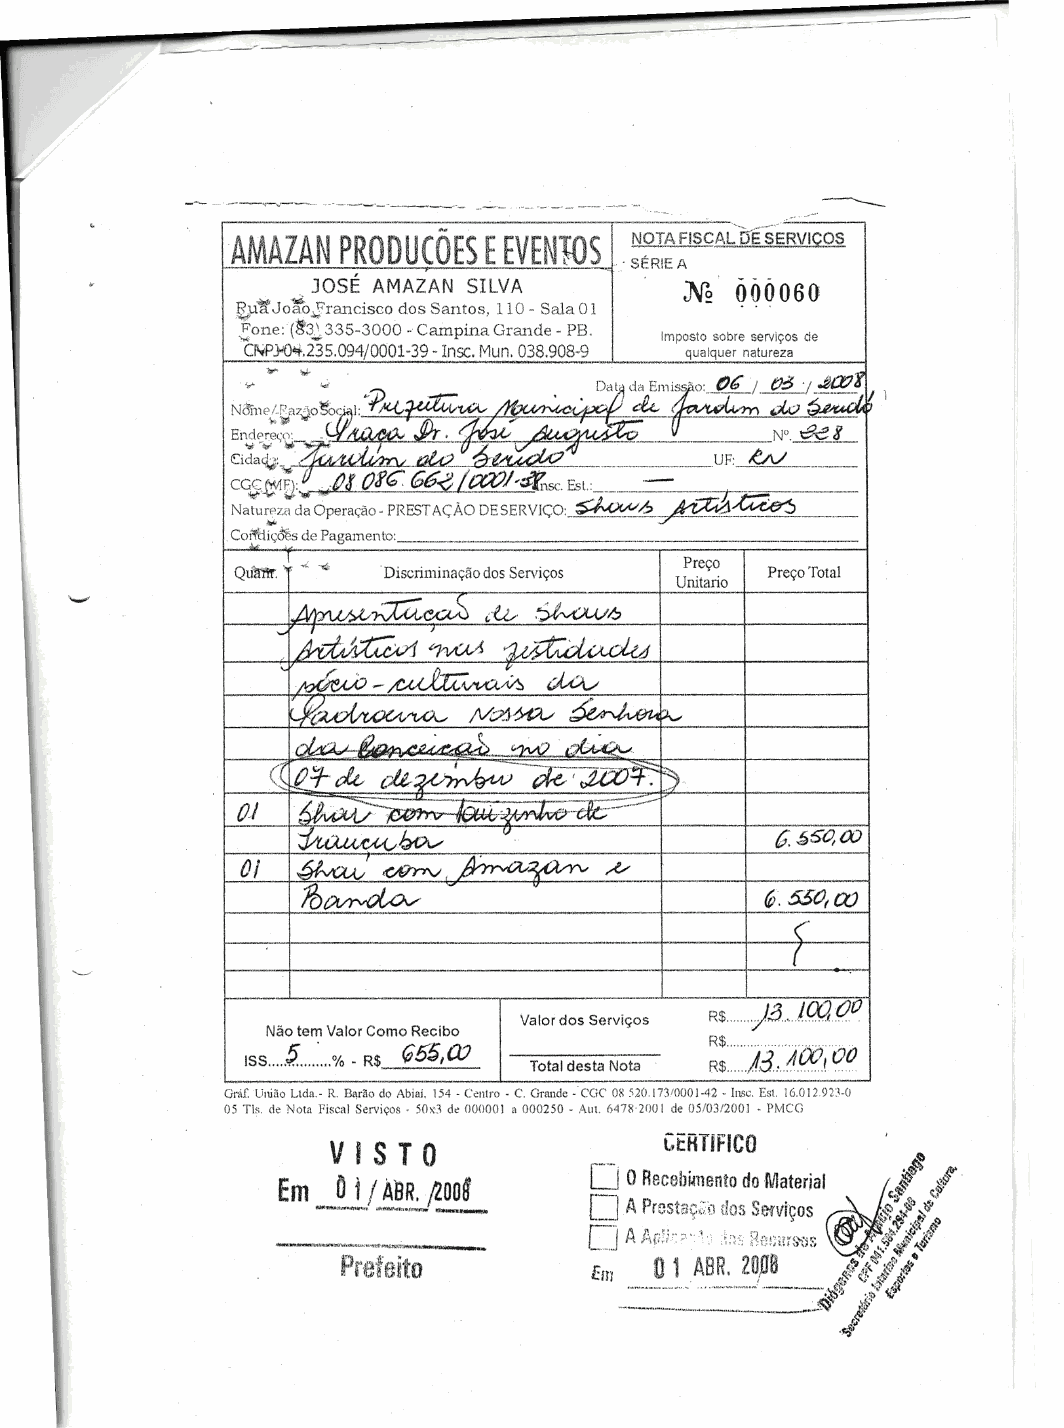 AMAZAN PRODUÇÕES E EVENTOS
JOSÉ AMAZAN SILVA
Rua João Francisco dos Santos, 110 - Sala 01
Fone: (83) 335-3000 - Campina Grande - PB.
CNPJ 04.235.094/0001-39 - Insc. Mun. 038.908-9
NOTA FISCAL DE SERVIÇOS
SÉRIE A
Nº 000060
Imposto sobre serviços de
qualquer natureza
Data da Emissão: 06 / 03 / 2008
Nome/Razão Social: Prefeitura Municipal de Jardim do Seridó
Endereço: Praça Dr. José Augusto Nº 228
Cidade: Jardim do Seridó UF: RN
CGC (MF): 08 086. 662/0001-38 Insc. Est.: —
Natureza da Operação - PRESTAÇÃO DE SERVIÇO: Shows Artísticos
Condições de Pagamento:
Quant. Discriminação dos Serviços Preço Unitario Preço Total
Apresentação de Shows
Artísticos nas festidades
sócio-culturais da
Padroeira Nossa Senhora
da Conceição no dia
07 de dezembro de 2007.
01 Show com Luizinho de
Irauçuba 6.550,00
01 Show com Amazan e
Banda 6.550,00
Não tem Valor Como Recibo
ISS....5.........% - R$ 655,00
Valor dos Serviços R$ 13.100,00
R$
Total desta Nota R$ 13.100,00
Gráf. União Ltda.- R. Barão do Abiai. 154 - Centro - C. Grande - CGC 08 520.173/0001-42 - Insc. Est. 16.012.923-0
05 Tls. de Nota Fiscal Serviços - 50x3 de 000001 a 000250 - Aut. 6478-2001 de 05/03/2001 - PMCG
VISTO
Em 01/ABR./2008
Prefeito
CERTIFICO
O Recebimento do Material
A Prestação dos Serviços
A Aplicação dos Recursos
Em 01 ABR. 2008
Diógenes de Araújo Santiago
Secretário Interino Municipal de Cultura,
Esportes e Turismo